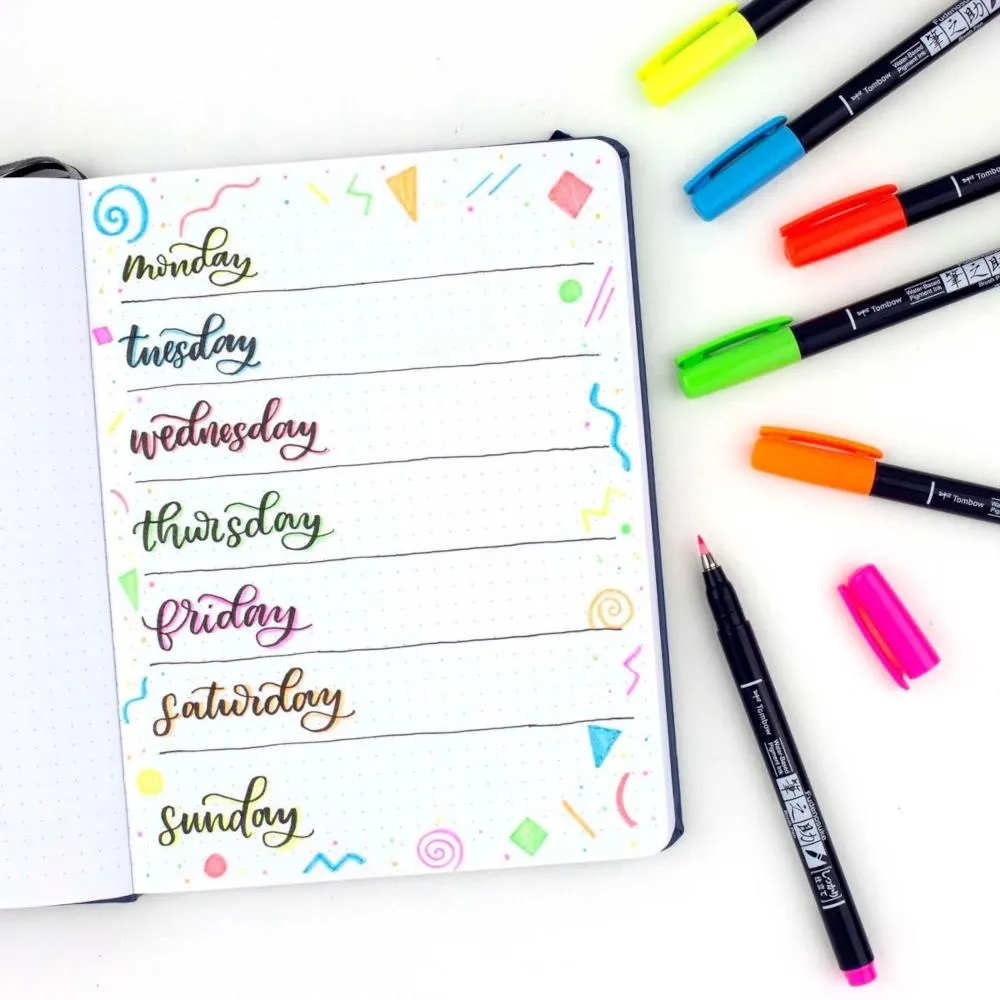 monday
tuesday
wednesday
thursday
friday
saturday
sunday
Fudenosuke
筆之助
Water-Based
Pigment Ink
Tombow
Tombow
筆之助
Water-Based
Pigment Ink
Tombow
Tombow
Tombow
Water-Based
Pigment Ink
筆之助
Fudenosuke